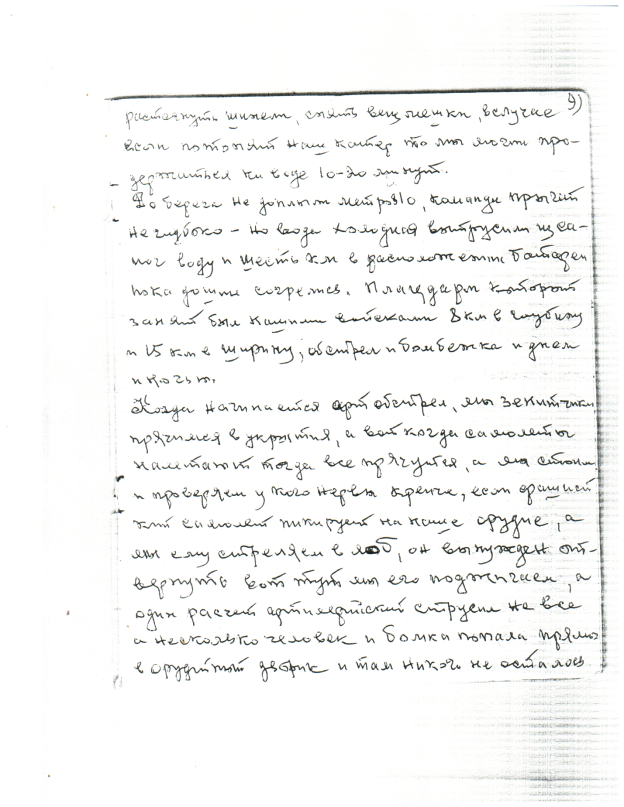 9)
растегнуть шинели, снять вещмешки, вслучае
если потопят наш катер то мы могли про-
держаться на воде 10-20 минут.
До берега не доплыли метров 10, команда прыгай
не глубоко - но вода холодная вытрусили из са-
пог воду и шесть км в расположении батареи
пока дошли согрелись. Плацдарм который
занят был нашими войсками 8 км в глубину
и 15 км в ширину, обстрел и бомбежка и днем
и ночью.
Когда начинается артобстрел, мы зенитчики
прячимся в укрытия, а вот когда самолеты
налетают тогда все прячутся, а мы стоим
и проверяем у кого нервы крепче, если фашист
кий самолет пикирует на наше орудие, а
мы ему стреляем в лоб, он вынужден от-
вернуть вот тут мы его поджигаем, а
один расчет артилерийский струсил не все
а несколько человек и бомба попала прямо
в орудийный дворик и там никого не осталось